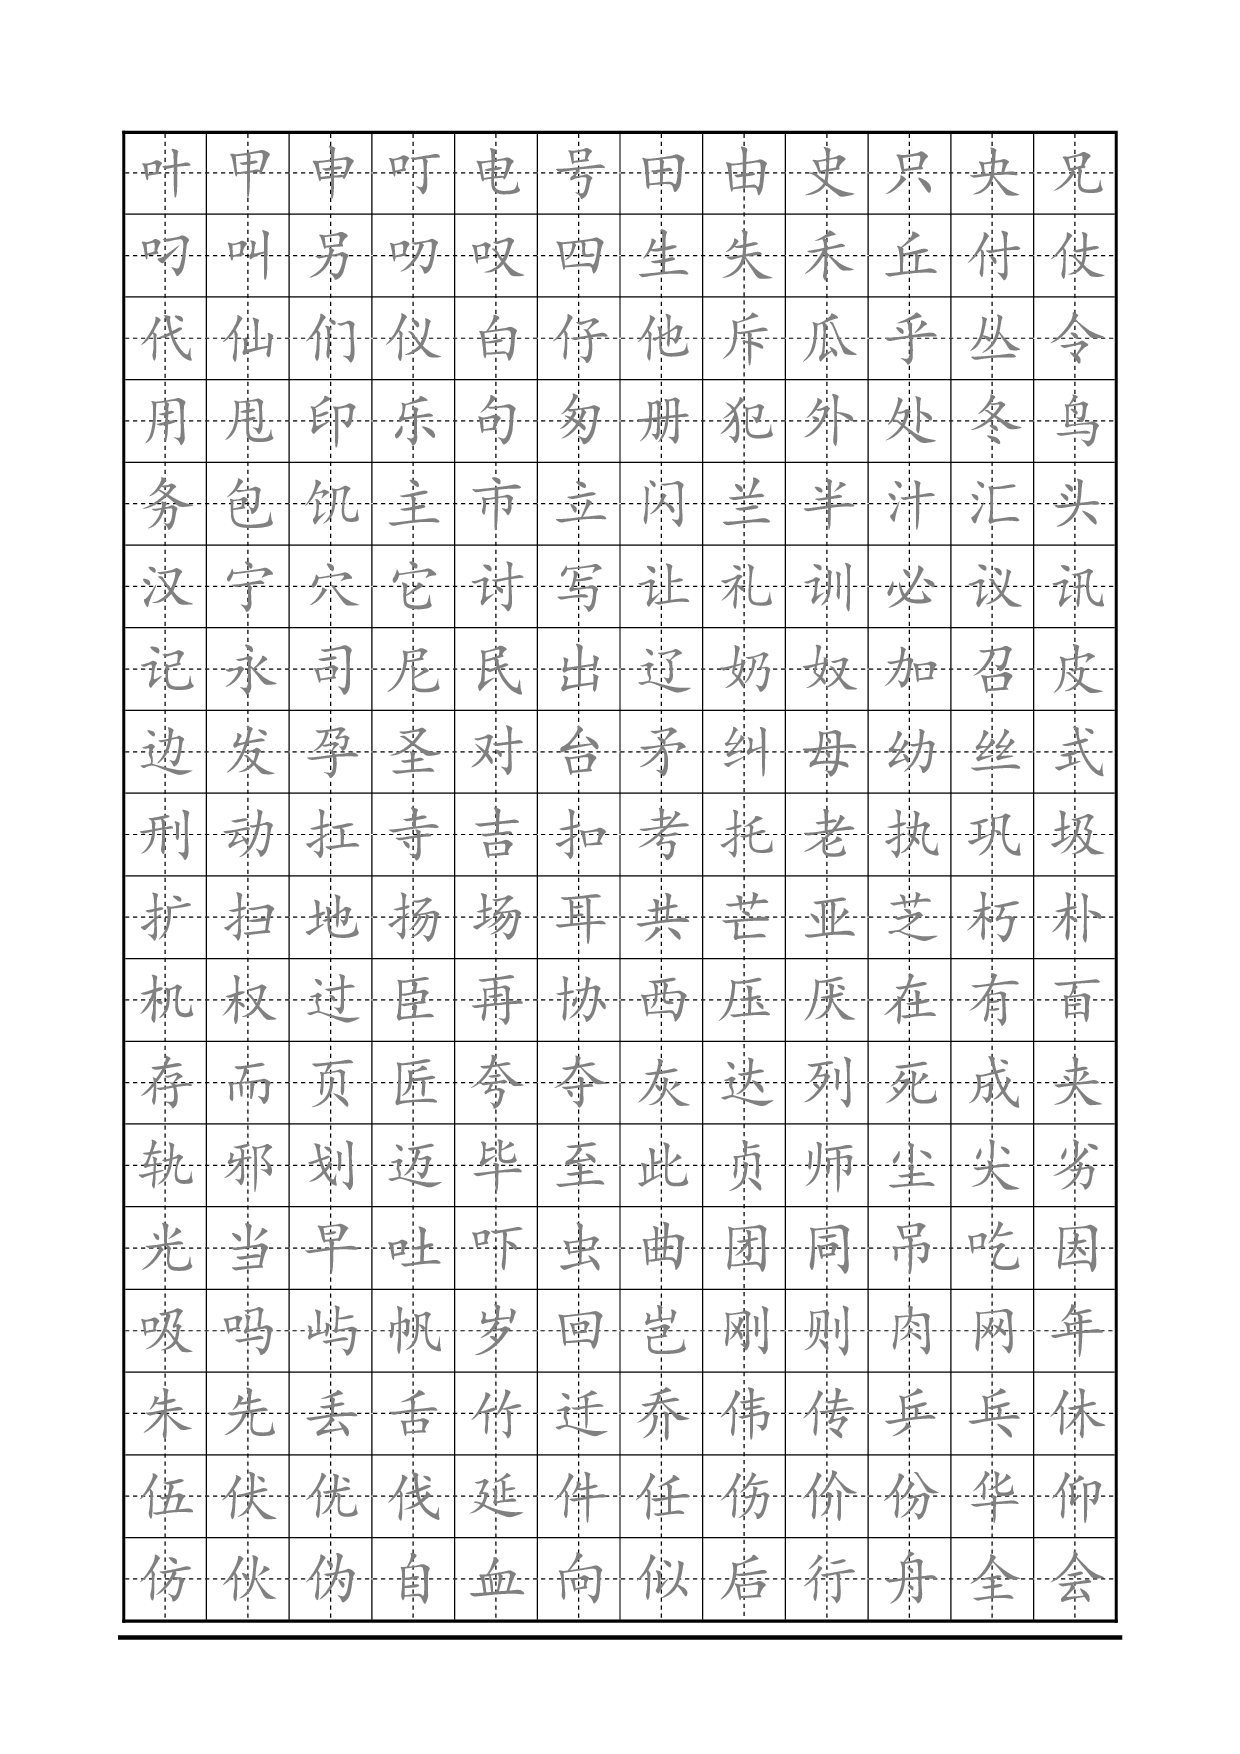 叶甲申叮电号田由史只央兄
叼叫另叨叹四生失禾丘付仗
代仙们仪白仔他斥瓜乎丛令
用甩印乐句匆册犯外处冬鸟
务包饥主市立闪兰半汁汇头
汉宁穴它讨写让礼训必议讯
记永司尼民出辽奶奴加召皮
边发孕圣对台矛纠母幼丝式
刑动扛寺吉扣考托老执巩圾
扩扫地扬场耳共芒亚芝朽朴
机权过臣再协西压厌在有百
存而页匠夸夺灰达列死成夹
轨邪划迈毕至此贞师尘尖劣
光当早吐吓虫曲团同吊吃因
吸吗屿帆岁回岂刚则肉网年
朱先丢舌竹迁乔伟传乒乓休
伍伏优伐延件任伤价份华仰
仿伙伪自血向似后行舟全会